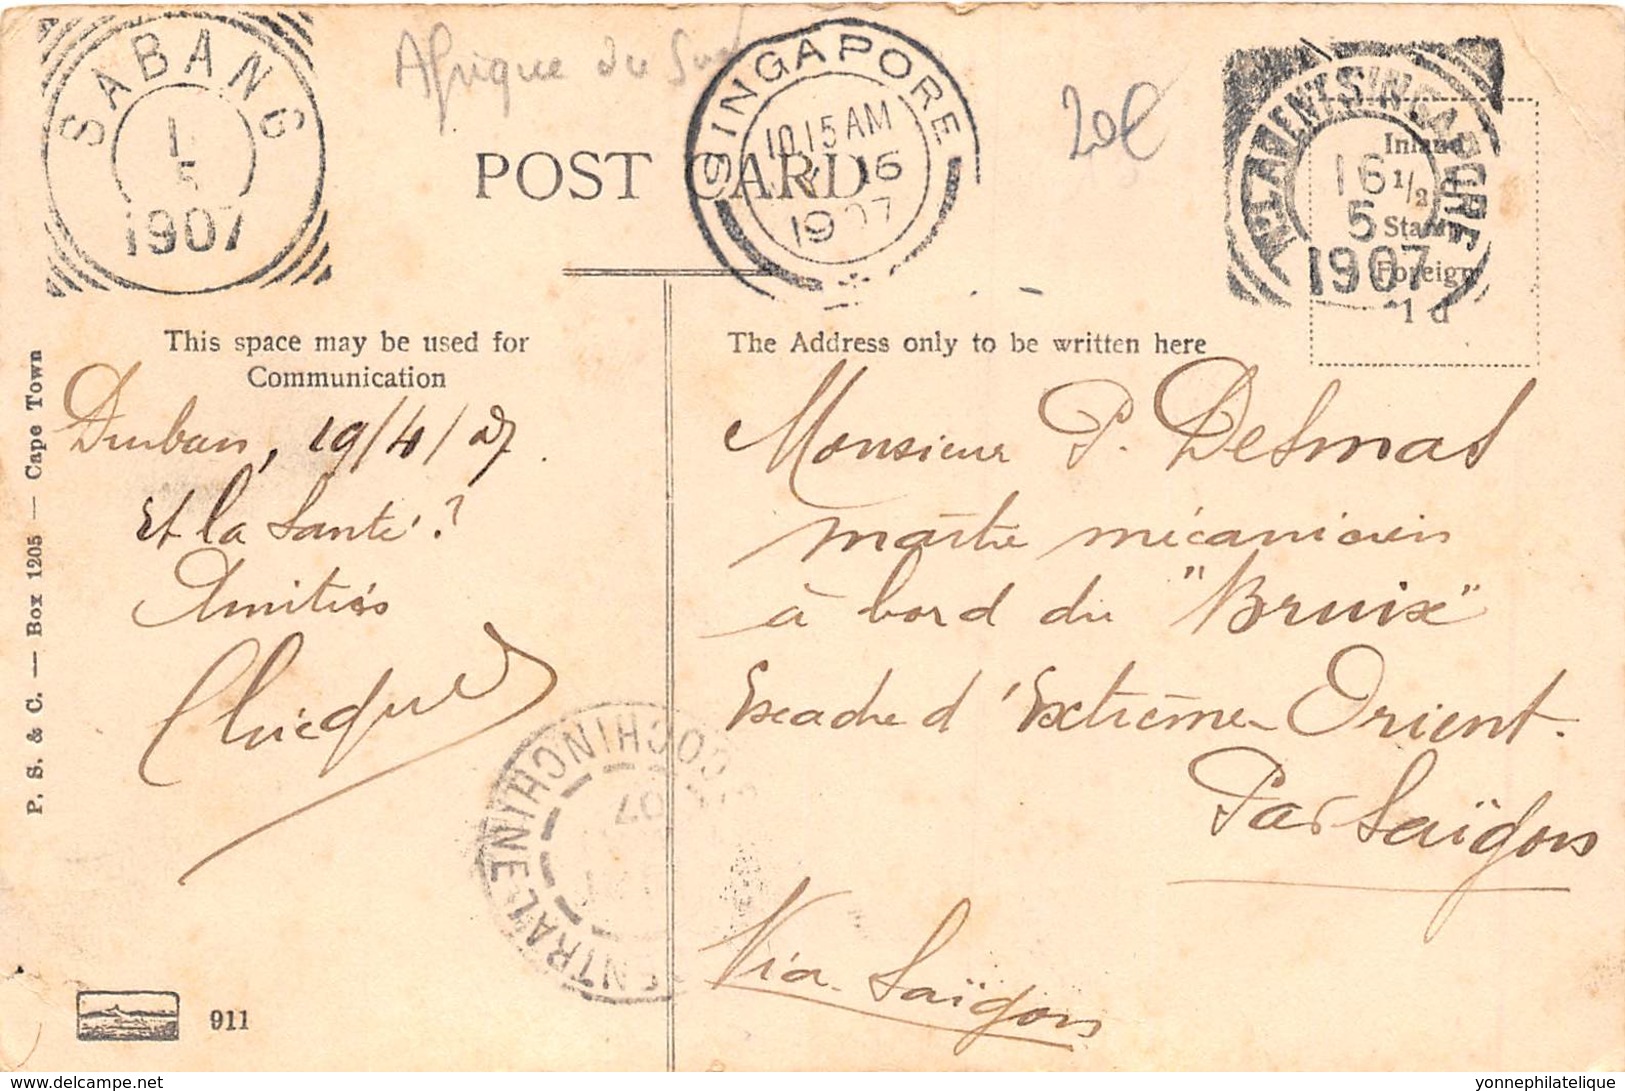 SABANG
1
5
1907
Afrique du Sud
SINGAPORE
10.15 AM
16
1907
20€
SINGAPORE
16
5
1907
POST CARD
Inland
1/2
Stamp
Foreign
1 d
This space may be used for
Communication
The Address only to be written here
Durban, 19/4/07.
Et la Santé ?
Amitiés
Monsieur P. Delmas
maître mécanicien
à bord du "Bruix"
Escadre d'Extrême Orient.
Par Saïgon
Via Saïgon
COCHINCHINE
07
P. S. & C. — Box 1205 — Cape Town
911
yonnephilatelique
www.delcampe.net
yonnephilatelique.com